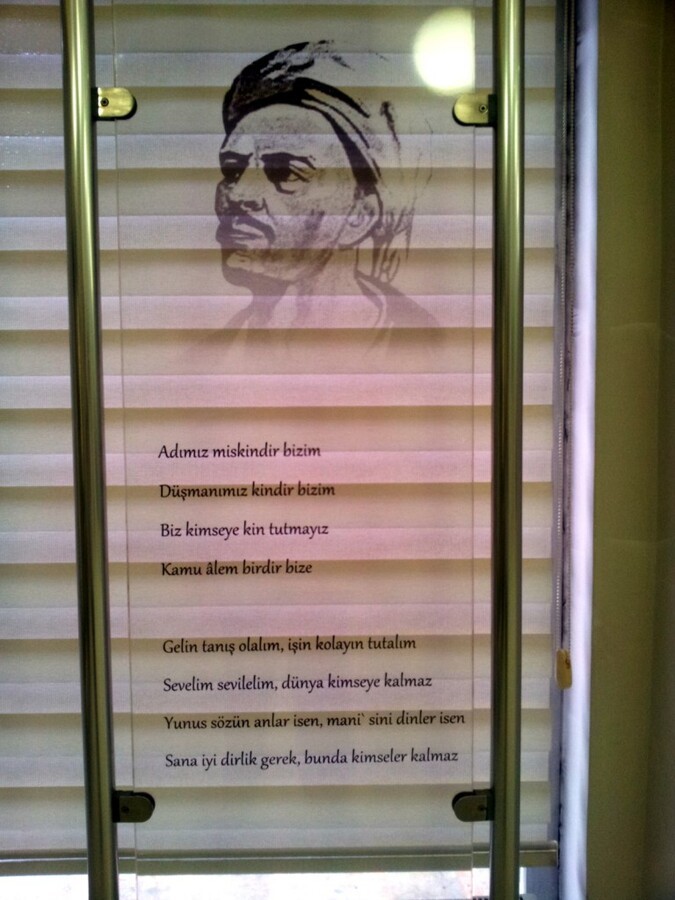 Adımız miskindir bizim
Düşmanımız kindir bizim
Biz kimseye kin tutmayız
Kamu âlem birdir bize
Gelin tanış olalım, işin kolayın tutalım
Sevelim sevilelim, dünya kimseye kalmaz
Yunus sözün anlar isen, mani` sini dinler isen
Sana iyi dirlik gerek, bunda kimseler kalmaz